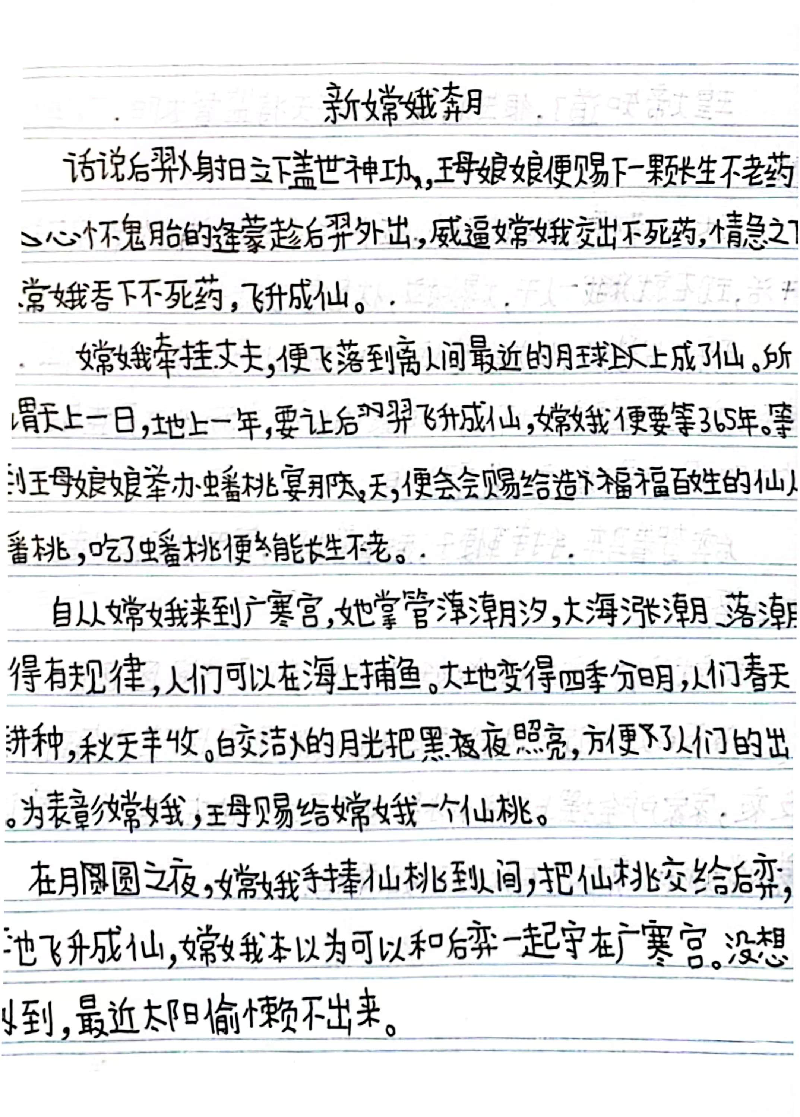 新嫦娥奔月
话说后羿射日立下盖世神功,王母娘娘便赐下一颗长生不老药
心怀鬼胎的逢蒙趁后羿外出,威逼嫦娥交出不死药,情急之下
嫦娥吞下不死药,飞升成仙。
嫦娥牵挂丈夫,便飞落到离人间最近的月球上成了仙。所
谓天上一日,地上一年,要让后羿飞升成仙,嫦娥便要等365年。等
到王母娘娘举办蟠桃宴那天,便会会赐给造福福百姓的仙人
蟠桃,吃了蟠桃便能长生不老。
自从嫦娥来到广寒宫,她掌管潮汐,大海涨潮、落潮
得有规律,人们可以在海上捕鱼。大地变得四季分明,人们春天
耕种,秋天丰收。皎洁的月光把黑夜夜照亮,方便了人们的出
。为表彰嫦娥,王母赐给嫦娥一个仙桃。
在月圆之夜,嫦娥手捧仙桃到人间,把仙桃交给后弈,
他飞升成仙,嫦娥本以为可以和后弈一起守在广寒宫。没想
到,最近太阳偷懒不出来。